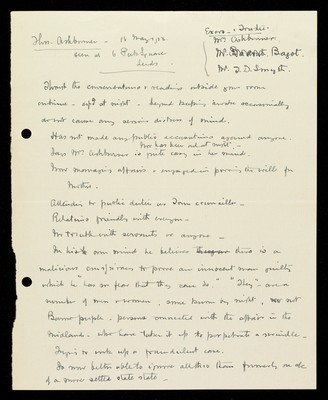 Exors. Trustees
Thos. Ashburner - 16 May, 1912. Mrs Ashburner
seen at 6 Park Square Mr. Bagot.
Leeds - Mr. J. D. Smyth.
Though the conversations & reading outside your room
continue - espy at night - beyond keeping awake occasionally
does not cause any serious distress of mind.
Has not made any public accusations against anyone.
Nor has been out at night -
Says Mrs Ashburner is quite easy in her mind.
Now managing affairs & engaged in proving the will for
Mother.
Attending to public duties as Town Councillor -
Relations friendly with everyone -
No trouble with servants or anyone -
In his own mind he believes there is a
malicious conspiracy to prove an innocent man guilty
which he has no fear that they can do. " "They" are a
number of men & women, some known by sight, not
Barrow people - persons connected with the affairs in the
Midlands - who have taken it up to perpetrate a swindle -
Trying to work up a fraudulent case.
Is now better able to ignore all this than formerly on a/c
of a more settled state -